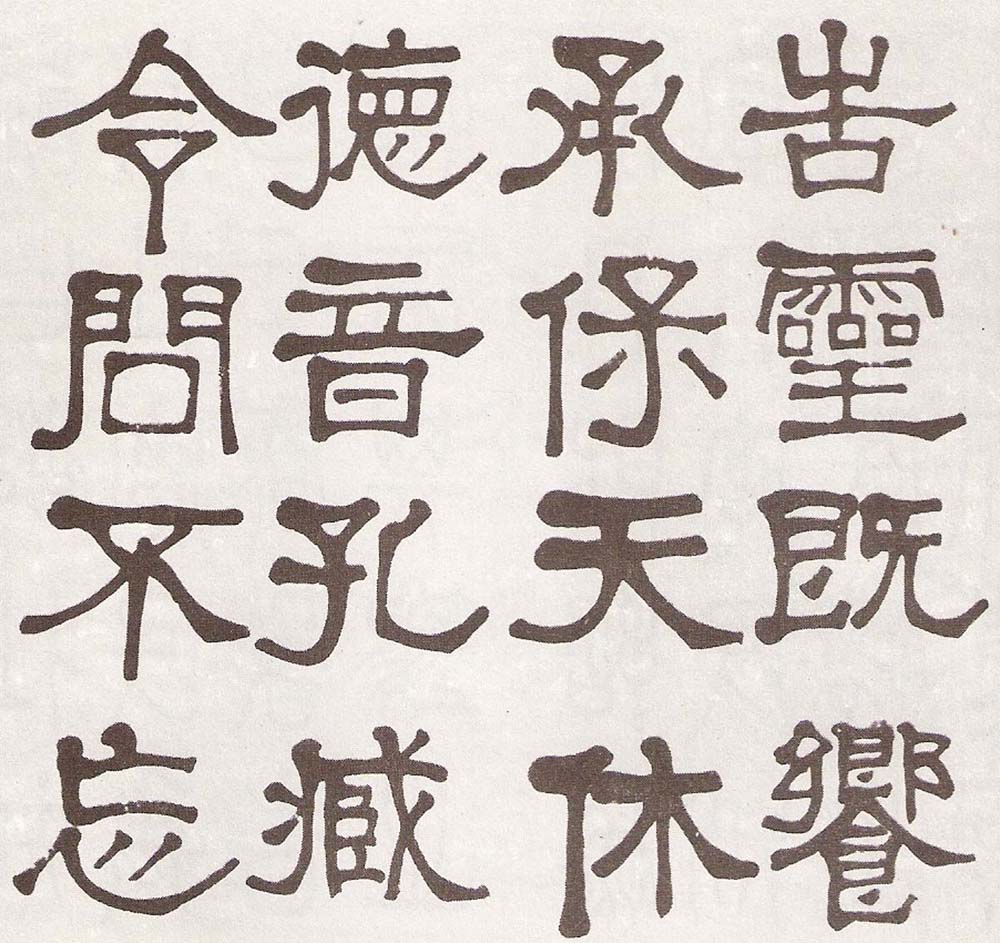 告靈既饗
承保天休
德音孔臧
令問不忘